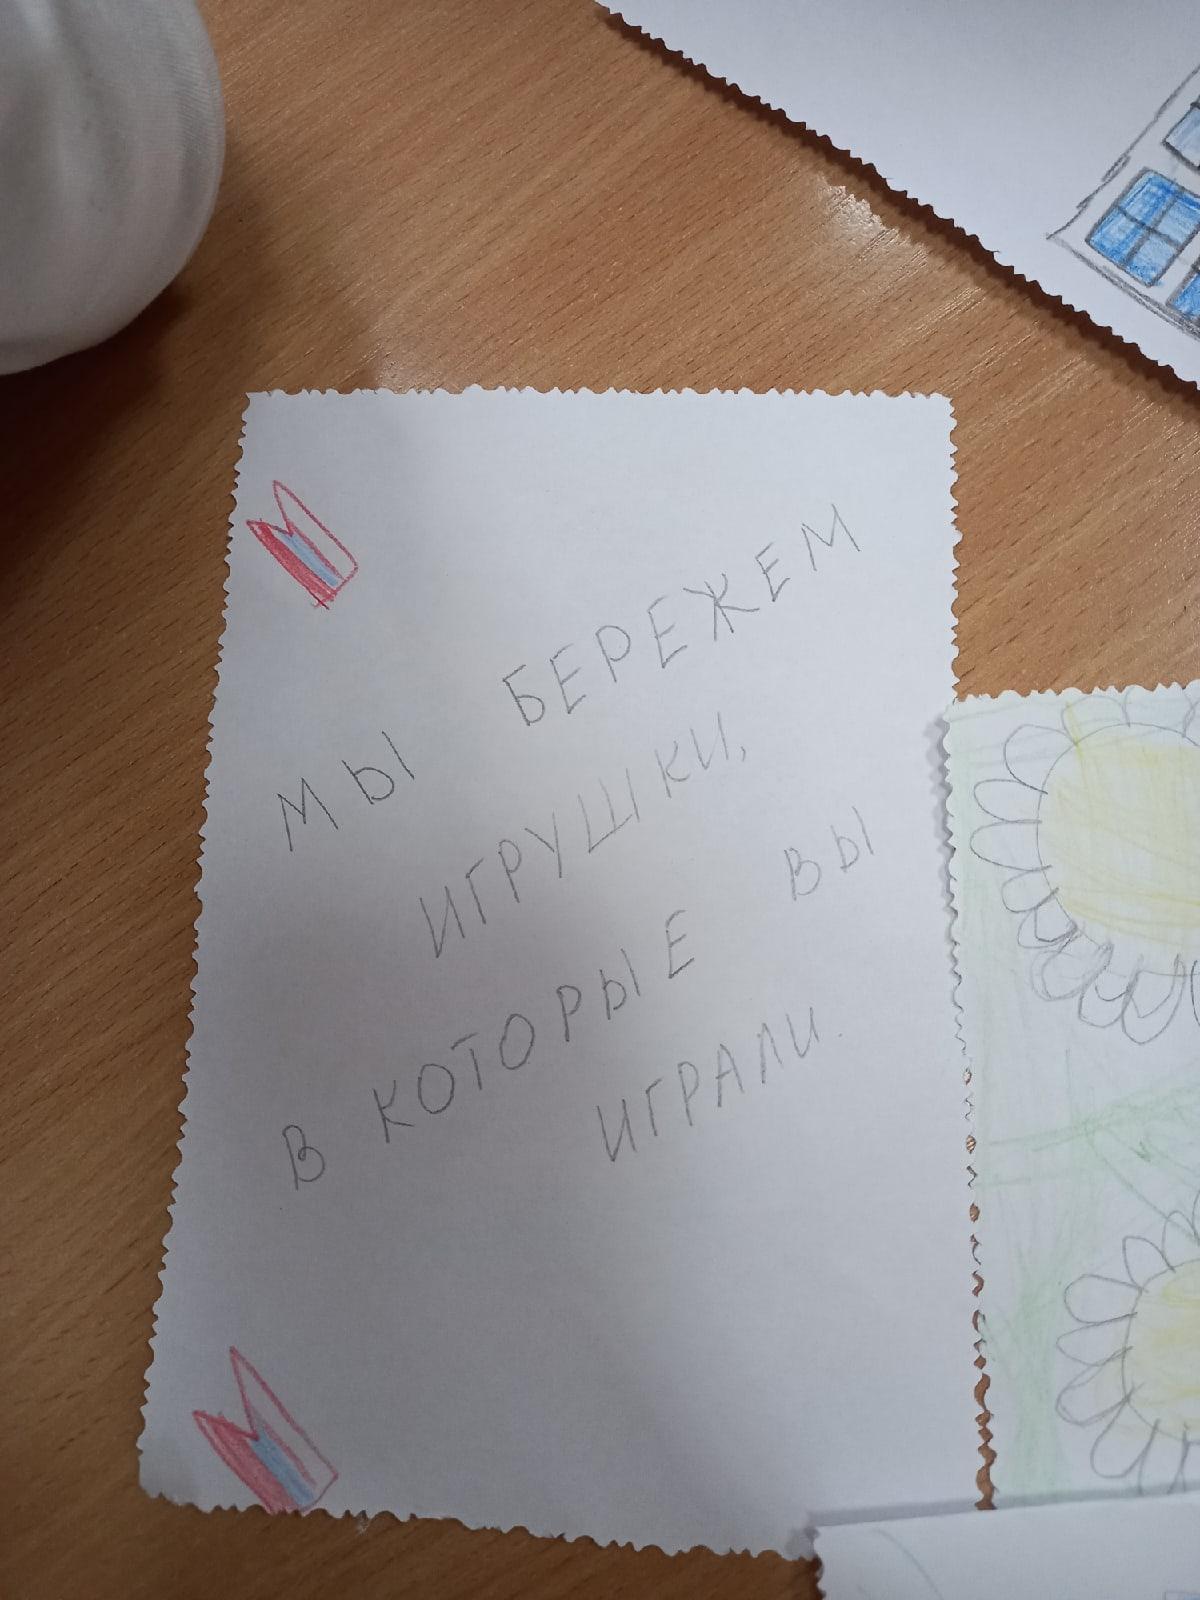 МЫ БЕРЕЖЕМ
ИГРУШКИ,
В КОТОРЫЕ ВЫ
ИГРАЛИ.